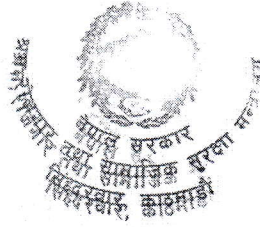 नेपाल सरकार
रोजगार तथा सामाजिक सुरक्षा मन्त्रालय
सिंहदरबार, काठमाडौं